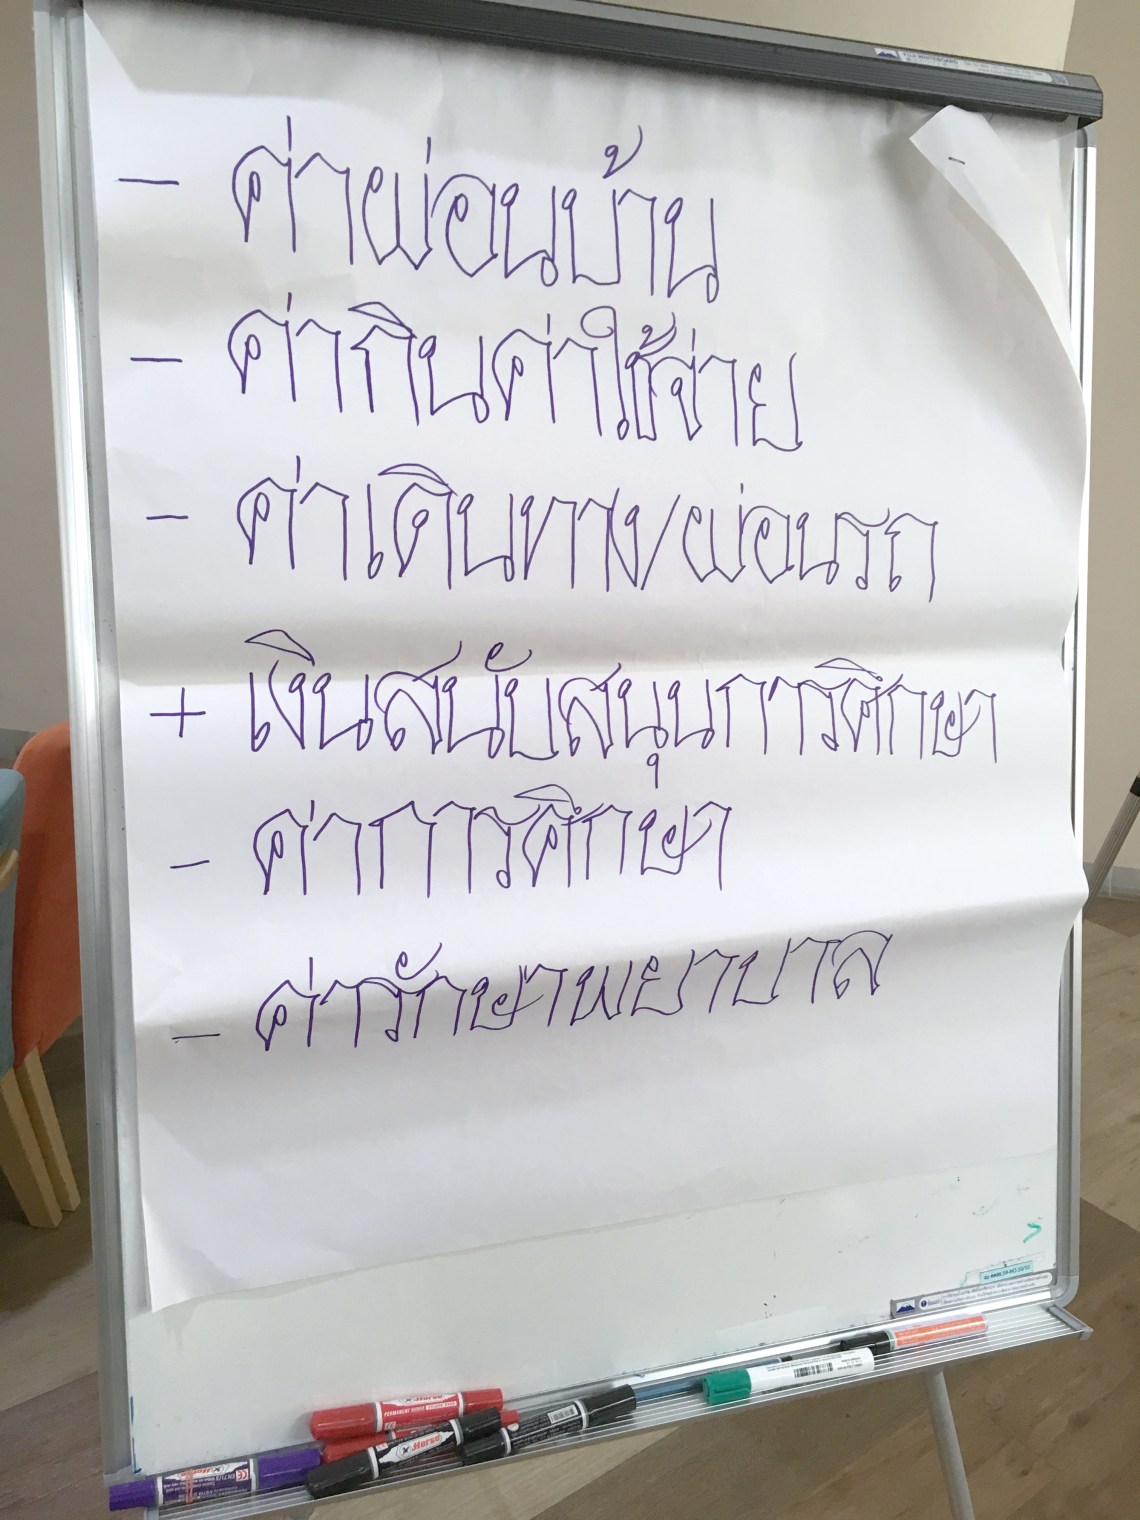 - ค่าผ่อนบ้าน
- ค่ากินค่าใช้จ่าย
- ค่าเดินทาง/ผ่อนรถ
+ เงินสนับสนุนการศึกษา
- ค่าการศึกษา
- ค่ารักษาพยาบาล
PERMANENT MARKER
Horse
Horse